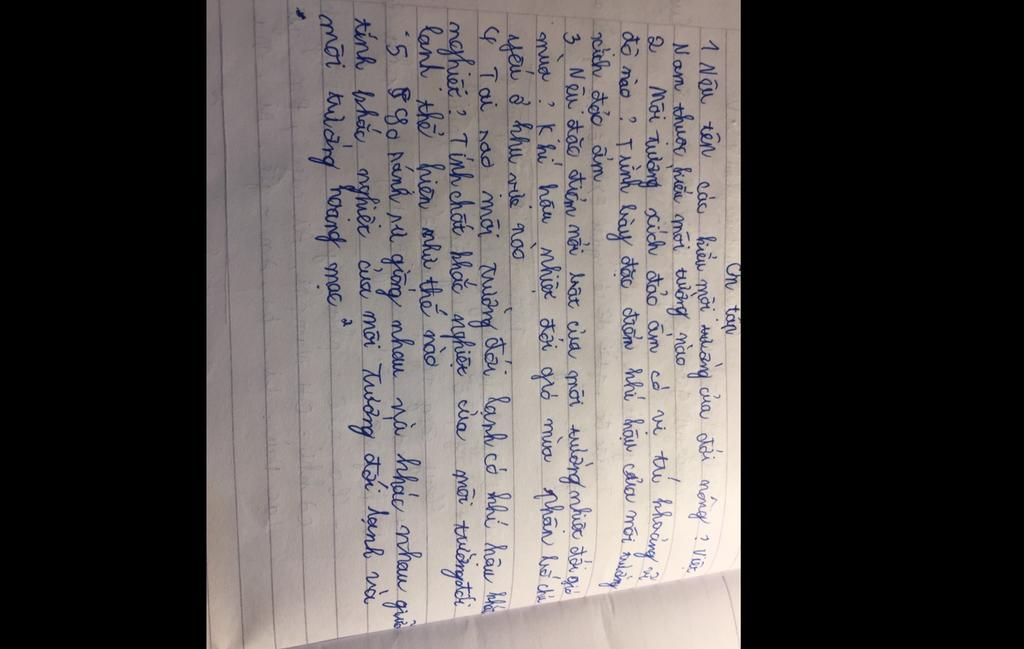 Ôn tập
1 Nêu tên các kiểu môi trường của đới nóng? Việt
Nam thuộc kiểu môi trường nào
2 Môi trường xích đạo ẩm có vị trí khoảng vĩ
độ nào? Trình bày đặc điểm khí hậu của môi trường
xích đạo ẩm
3 Nêu đặc điểm nổi bật của môi trường nhiệt đới gió
mùa? Khí hậu nhiệt đới gió mùa phân bố chủ
yếu ở khu vực nào
4 Tại sao môi trường đới lạnh có khí hậu khắc
nghiệt? Tính chất khắc nghiệt của môi trường đới
lạnh thể hiện như thế nào
5 So sánh sự giống nhau và khác nhau giữa
tính khắc nghiệt của môi trường đới lạnh và
môi trường hoang mạc?